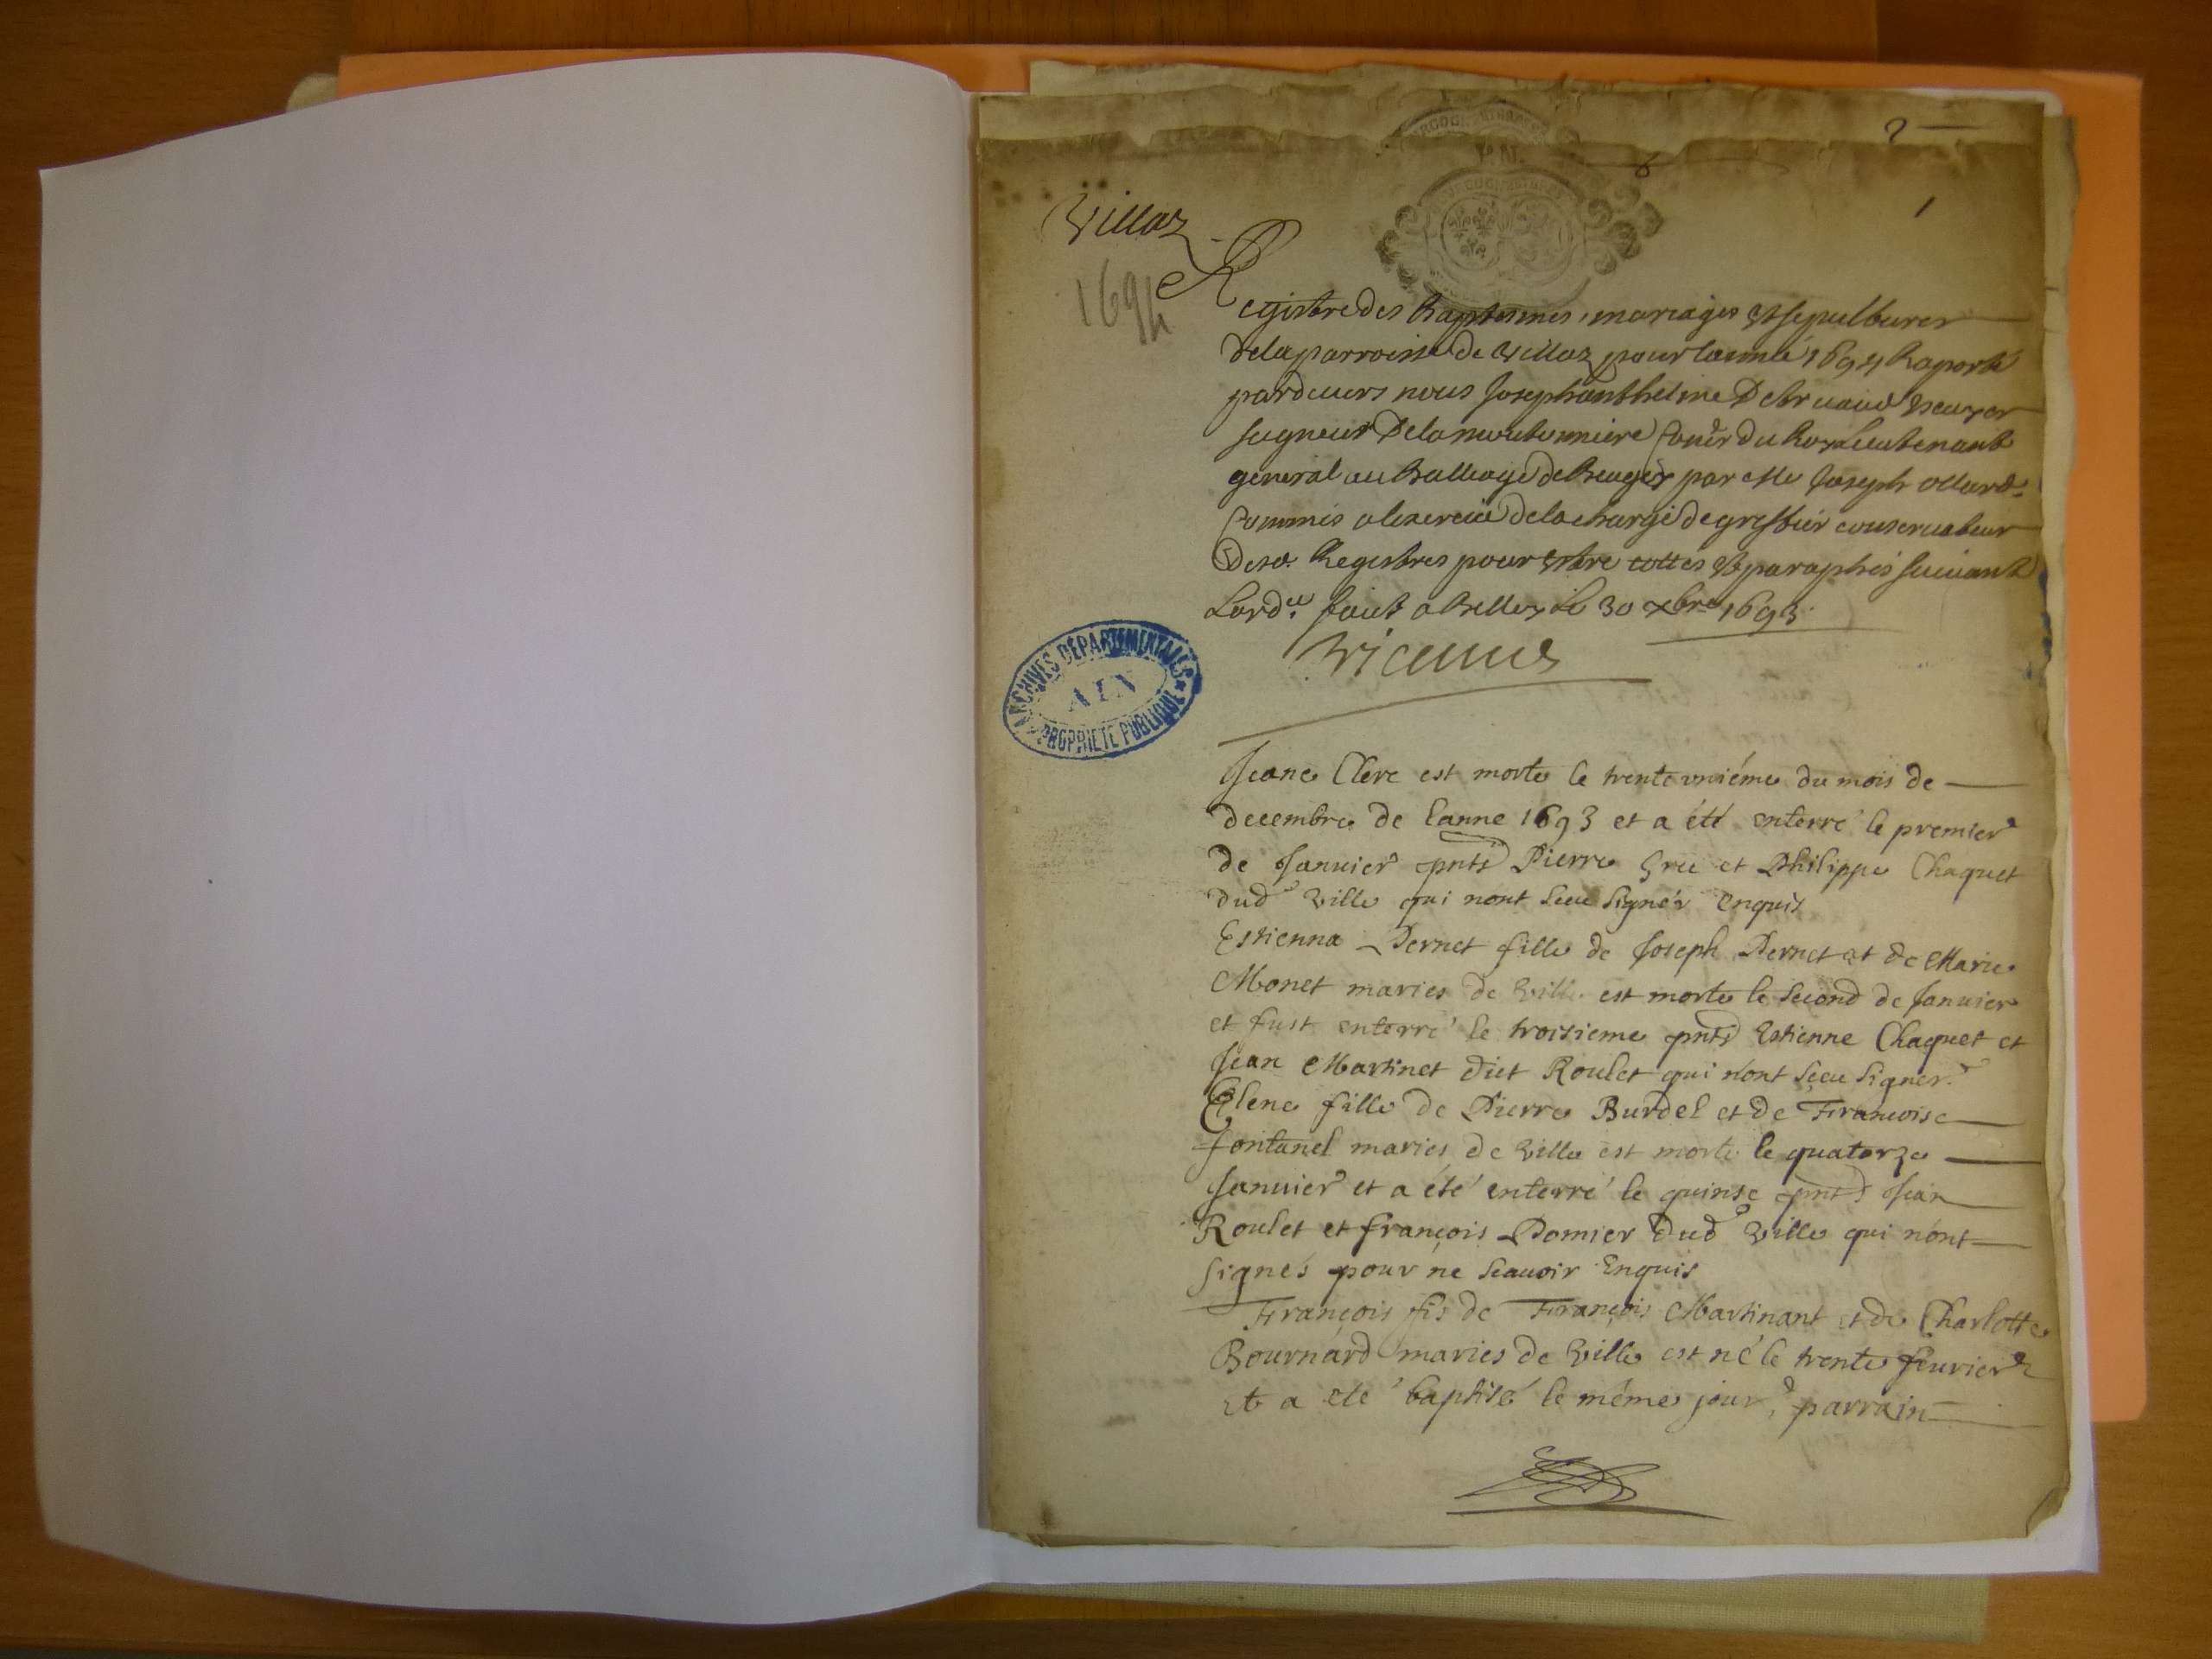 2
1
Villaz
1694
Registre des Baptesmes, mariages et sepultures
de la parroisse de Villaz pour lannée 1694 Raporté
pardevers nous Joseph Anthelme escuyer
seigneur De la moutonniere Conēr du Roy Lieutenant
general au Balliage de Beugey par Me Joseph
Commis a lexercice de la charge de greffier conservateur
Desd. Registres pour estre cottés et paraphés suivant
Lordce fait a Belley le 30 xbre 1693
ARCHIVES DÉPARTEMENTALES
AIN
PROPRIÉTÉ PUBLIQUE
Jeane Clerc est morte le trente uniéme du mois de
decembre de lanne 1693 et a été enterré le premier
de Janvier pnts Pierre et Philippe Chaquet
dud Ville qui nont sceu signér Enquis
Estienna Pernet fille de Joseph Pernet et de Marie
Monet mariés de Ville est morte le second de Janvier
et fust enterré le troisieme pnts Estienne Chaquet et
Jean Martinet dict Roulet qui nont sceu signer
Elene fille de Pierre Burdel et de Francoise
fontanel mariés de Ville est morte le quatorze
Janvier et a été enterré le quinse pnts Jean
Roulet et françois Pomier dud Ville qui nont
signés pour ne sçauoir Enquis
François fis de François Martinant et de Charlotte
Bournard mariés de Ville est né le trente feurier
et a eté baptisé le méme jour, parrain